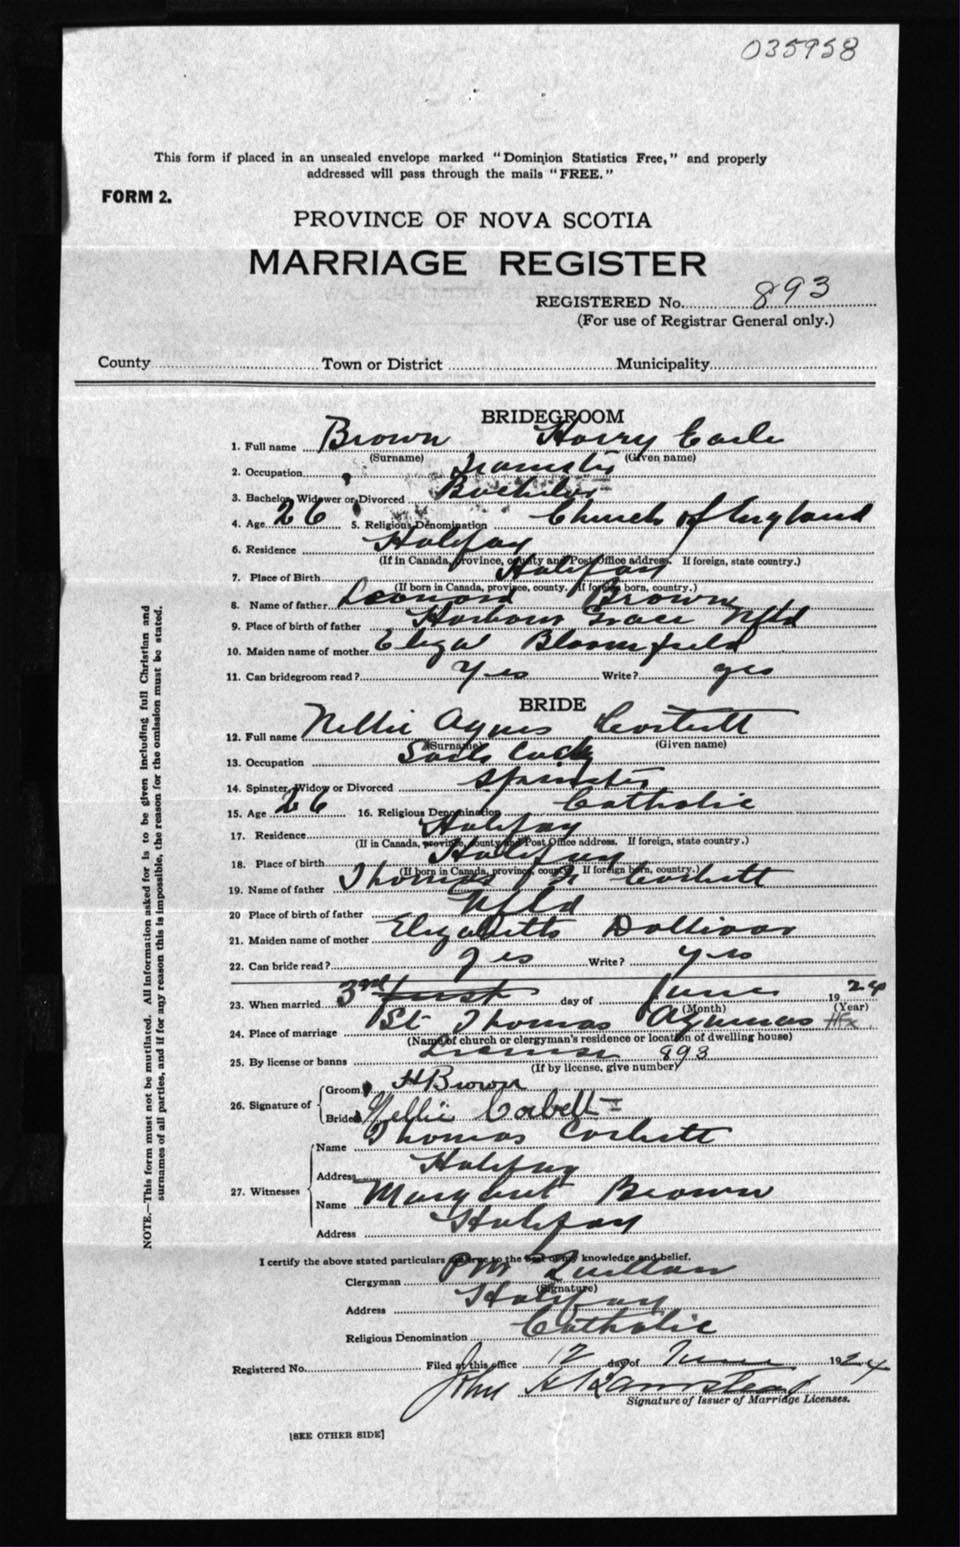 035958
This form if placed in an unsealed envelope marked "Dominion Statistics Free," and properly
addressed will pass through the mails "FREE."
FORM 2.
PROVINCE OF NOVA SCOTIA
MARRIAGE REGISTER
REGISTERED No. 893
(For use of Registrar General only.)
County Town or District Municipality
BRIDEGROOM
1. Full name Brown Harry Earle
(Surname) (Given name)
2. Occupation Teamster
3. Bachelor, Widower or Divorced Bachelor
4. Age 26 5. Religious Denomination Church of England
6. Residence Halifax
(If in Canada, province, county and Post Office address. If foreign, state country.)
7. Place of Birth Halifax
(If born in Canada, province, county. If foreign born, country.)
8. Name of father Leonard Brown
9. Place of birth of father Harbour Grace Nfld
10. Maiden name of mother Eliza Bloomfield
11. Can bridegroom read? Yes Write? yes
BRIDE
12. Full name Nellie Agnes Corbett
(Surname) (Given name)
13. Occupation
14. Spinster, Widow or Divorced Spinster
15. Age 26 16. Religious Denomination Catholic
17. Residence Halifax
(If in Canada, province, county and Post Office address. If foreign, state country.)
18. Place of birth Halifax
(If born in Canada, province, county. If foreign born, country.)
19. Name of father Thomas Corbett
20 Place of birth of father Nfld
21. Maiden name of mother Elizabeth Dollivar
22. Can bride read? yes Write? yes
23. When married 3rd first day of June 1924
(Month) (Year)
24. Place of marriage St Thomas Aquinas Hfx
(Name of church or clergyman's residence or location of dwelling house)
25. By license or banns License 893
(If by license, give number)
26. Signature of Groom H Brown
Bride Nellie Corbett
27. Witnesses Name Thomas Corbett
Address Halifax
Name Margaret Brown
Address Halifax
I certify the above stated particulars are true to the best of my knowledge and belief.
Clergyman P M Quillan
(Signature)
Address Halifax
Religious Denomination Catholic
Registered No. Filed at this office 12 day of June 1924
John
Signature of Issuer of Marriage Licenses.
[SEE OTHER SIDE]
NOTE.—This form must not be mutilated. All information asked for is to be given including full Christian and
surnames of all parties, and if for any reason this is impossible, the reason for the omission must be stated.